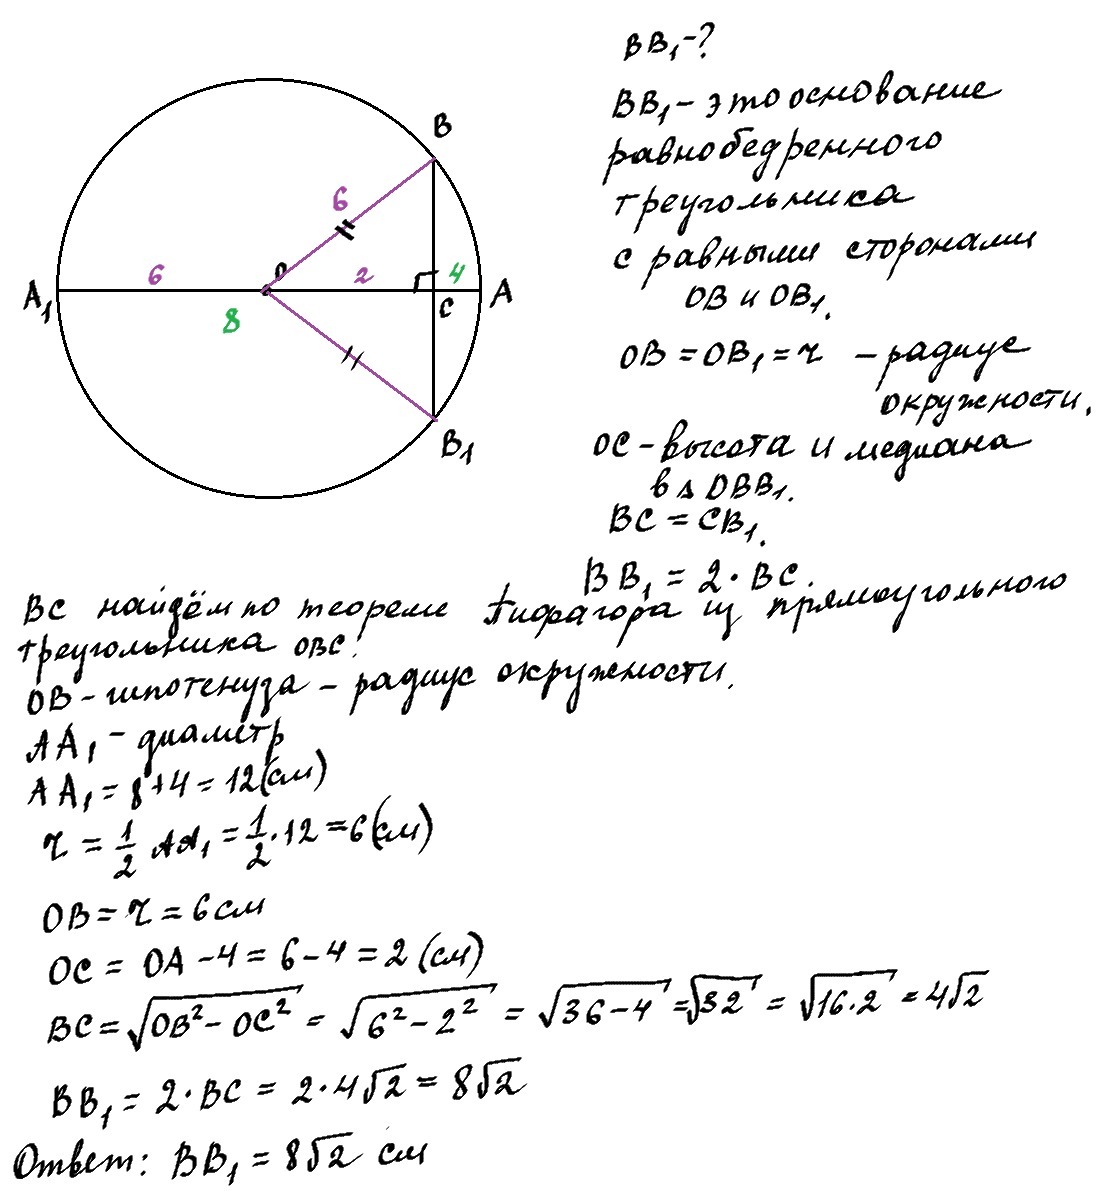 BB₁-?
BB₁ - это основание
равнобедренного
треугольника
с равными сторонами
OB и OB₁.
OB = OB₁ = r - радиус
окружности.
OC - высота и медиана
в Δ OBB₁.
BC = CB₁.
BB₁ = 2 · BC.
B
6
6
O
2
4
A₁
C
A
8
B₁
BC найдём по теореме Пифагора из прямоугольного
треугольника OBC:
OB - гипотенуза - радиус окружности.
AA₁ - диаметр
AA₁ = 8+4 = 12(см)
r = 1/2 AA₁ = 1/2 · 12 = 6(см)
OB = r = 6 см
OC = OA - 4 = 6 - 4 = 2 (см)
BC = √(OB² - OC²) = √(6² - 2²) = √(36 - 4) = √32 = √(16·2) = 4√2
BB₁ = 2 · BC = 2 · 4√2 = 8√2
Ответ: BB₁ = 8√2 см